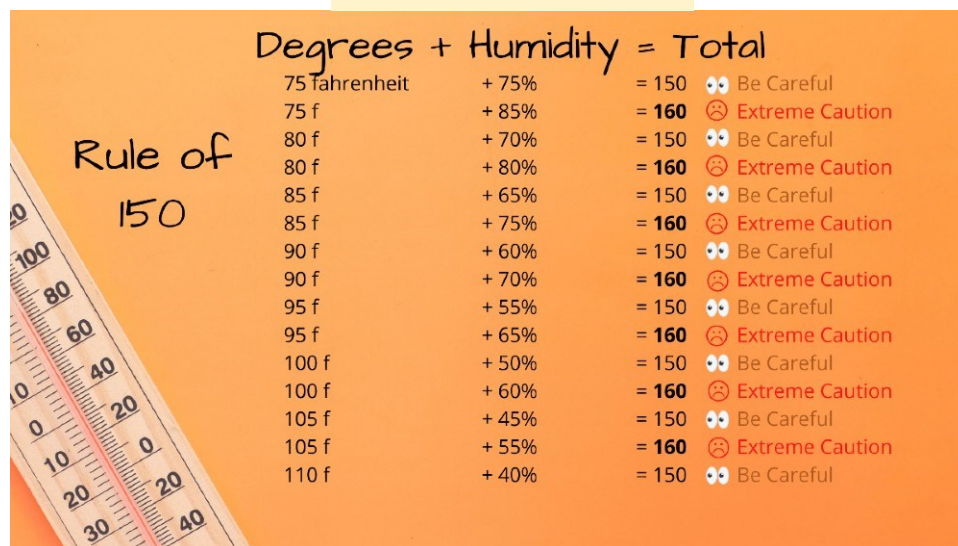 Degrees + Humidity = Total
75 fahrenheit + 75% = 150 👀 Be Careful
75 f + 85% = 160 ☹ Extreme Caution
80 f + 70% = 150 👀 Be Careful
80 f + 80% = 160 ☹ Extreme Caution
85 f + 65% = 150 👀 Be Careful
85 f + 75% = 160 ☹ Extreme Caution
90 f + 60% = 150 👀 Be Careful
90 f + 70% = 160 ☹ Extreme Caution
95 f + 55% = 150 👀 Be Careful
95 f + 65% = 160 ☹ Extreme Caution
100 f + 50% = 150 👀 Be Careful
100 f + 60% = 160 ☹ Extreme Caution
105 f + 45% = 150 👀 Be Careful
105 f + 55% = 160 ☹ Extreme Caution
110 f + 40% = 150 👀 Be Careful
Rule of
150
20
100
80
60
40
20
0
20
40
10
0
10
20
30